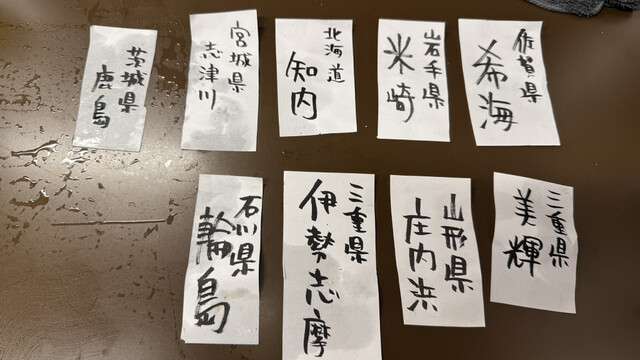 茨城県
鹿島
宮城県
志津川
北海道
知内
岩手県
米崎
佐賀県
希海
石川県
輪島
三重県
伊勢志摩
山形県
庄内浜
三重県
美輝